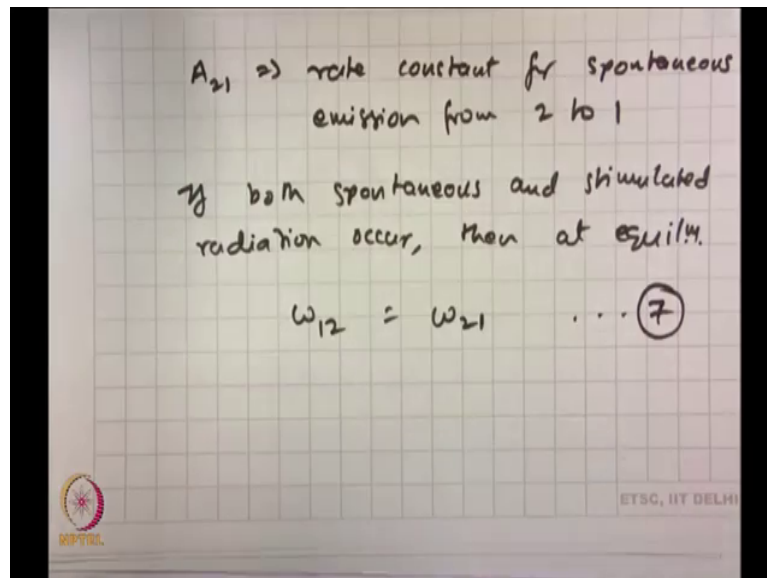 A₂₁ ⇒ rate constant for spontaneous
emission from 2 to 1
If both spontaneous and stimulated
radiation occur, then at equilm.
ω₁₂ = ω₂₁ ... ⑦
ETSC, IIT DELHI
NPTEL